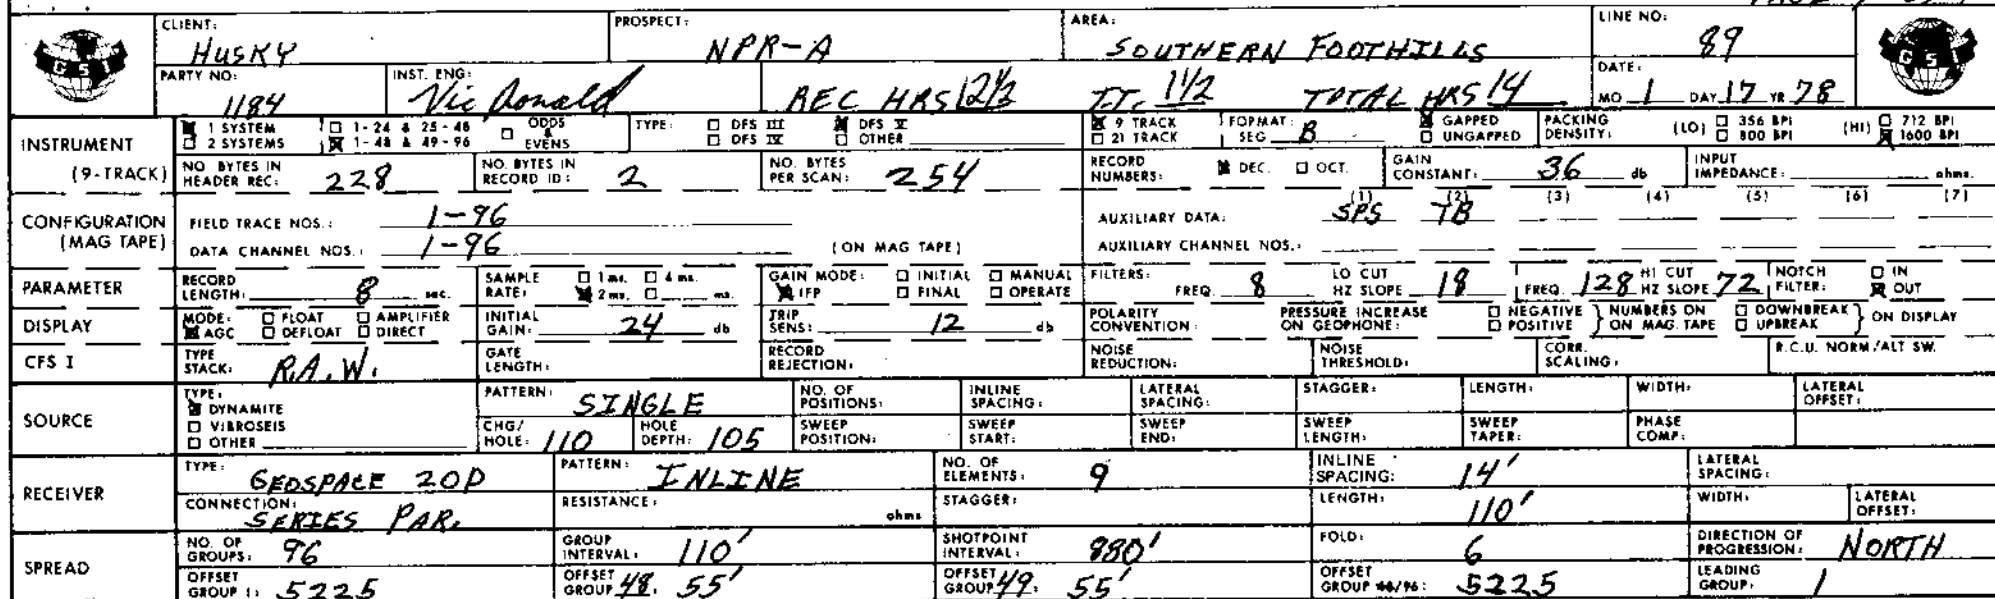 CLIENT: HUSKY PROSPECT: NPR-A AREA: SOUTHERN FOOTHILLS LINE NO: 89
GSI GSI
PARTY NO: 1184 INST. ENG: Vic Donald REC HRS 12 1/2 TT. 1 1/2 TOTAL HRS 14 DATE: MO 1 DAY 17 YR 78
INSTRUMENT (9-TRACK)
☒ 1 SYSTEM ☐ 1-24 & 25-48 ☐ ODDS & EVENS TYPE: ☐ DFS III ☒ DFS V ☒ 9 TRACK FORMAT: SEG B ☒ GAPPED PACKING DENSITY: (LO) ☐ 356 BPI (HI) ☐ 712 BPI
☐ 2 SYSTEMS ☒ 1-48 & 49-96 ☐ DFS IV ☐ OTHER ☐ 21 TRACK ☐ UNGAPPED ☐ 800 BPI ☒ 1600 BPI
NO. BYTES IN HEADER REC: 228 NO. BYTES IN RECORD ID: 2 NO. BYTES PER SCAN: 254 RECORD NUMBERS: ☒ DEC. ☐ OCT. GAIN CONSTANT: 36 db INPUT IMPEDANCE: ohms.
CONFIGURATION (MAG TAPE)
FIELD TRACE NOS.: 1-96 AUXILIARY DATA: (1) SPS (2) TB (3) (4) (5) (6) (7)
DATA CHANNEL NOS.: 1-96 (ON MAG TAPE) AUXILIARY CHANNEL NOS.:
PARAMETER RECORD LENGTH: 8 sec. SAMPLE RATE: ☐ 1 ms. ☐ 4 ms. ☒ 2 ms. ☐ ms. GAIN MODE: ☐ INITIAL ☐ MANUAL ☒ IFP ☐ FINAL ☐ OPERATE FILTERS: FREQ. 8 LO CUT HZ SLOPE 18 FREQ. 128 HI CUT HZ SLOPE 72 NOTCH FILTER: ☐ IN ☒ OUT
DISPLAY MODE: ☐ FLOAT ☐ AMPLIFIER ☒ AGC ☐ DEFLOAT ☐ DIRECT INITIAL GAIN: 24 db TRIP SENS: 12 db POLARITY CONVENTION: PRESSURE INCREASE ON GEOPHONE: ☐ NEGATIVE ☐ POSITIVE } NUMBERS ON MAG. TAPE ☐ DOWNBREAK ☐ UPBREAK } ON DISPLAY
CFS I TYPE STACK: R.A.W. GATE LENGTH: RECORD REJECTION: NOISE REDUCTION: NOISE THRESHOLD: CORR. SCALING: R.C.U. NORM/ALT SW.
SOURCE TYPE: ☒ DYNAMITE ☐ VIBROSEIS ☐ OTHER
PATTERN: SINGLE NO. OF POSITIONS: INLINE SPACING: LATERAL SPACING: STAGGER: LENGTH: WIDTH: LATERAL OFFSET:
CHG/HOLE: 110 HOLE DEPTH: 105 SWEEP POSITION: SWEEP START: SWEEP END: SWEEP LENGTH: SWEEP TAPER: PHASE COMP:
RECEIVER TYPE: GEOSPACE 20D PATTERN: INLINE NO. OF ELEMENTS: 9 INLINE SPACING: 14' LATERAL SPACING:
CONNECTION: SERIES PAR. RESISTANCE: ohms STAGGER: LENGTH: 110' WIDTH: LATERAL OFFSET:
SPREAD NO. OF GROUPS: 96 GROUP INTERVAL: 110' SHOTPOINT INTERVAL: 880' FOLD: 6 DIRECTION OF PROGRESSION: NORTH
OFFSET GROUP 1: 5225 OFFSET GROUP 48: 55' OFFSET GROUP 49: 55' OFFSET GROUP 48/96: 5225 LEADING GROUP: 1